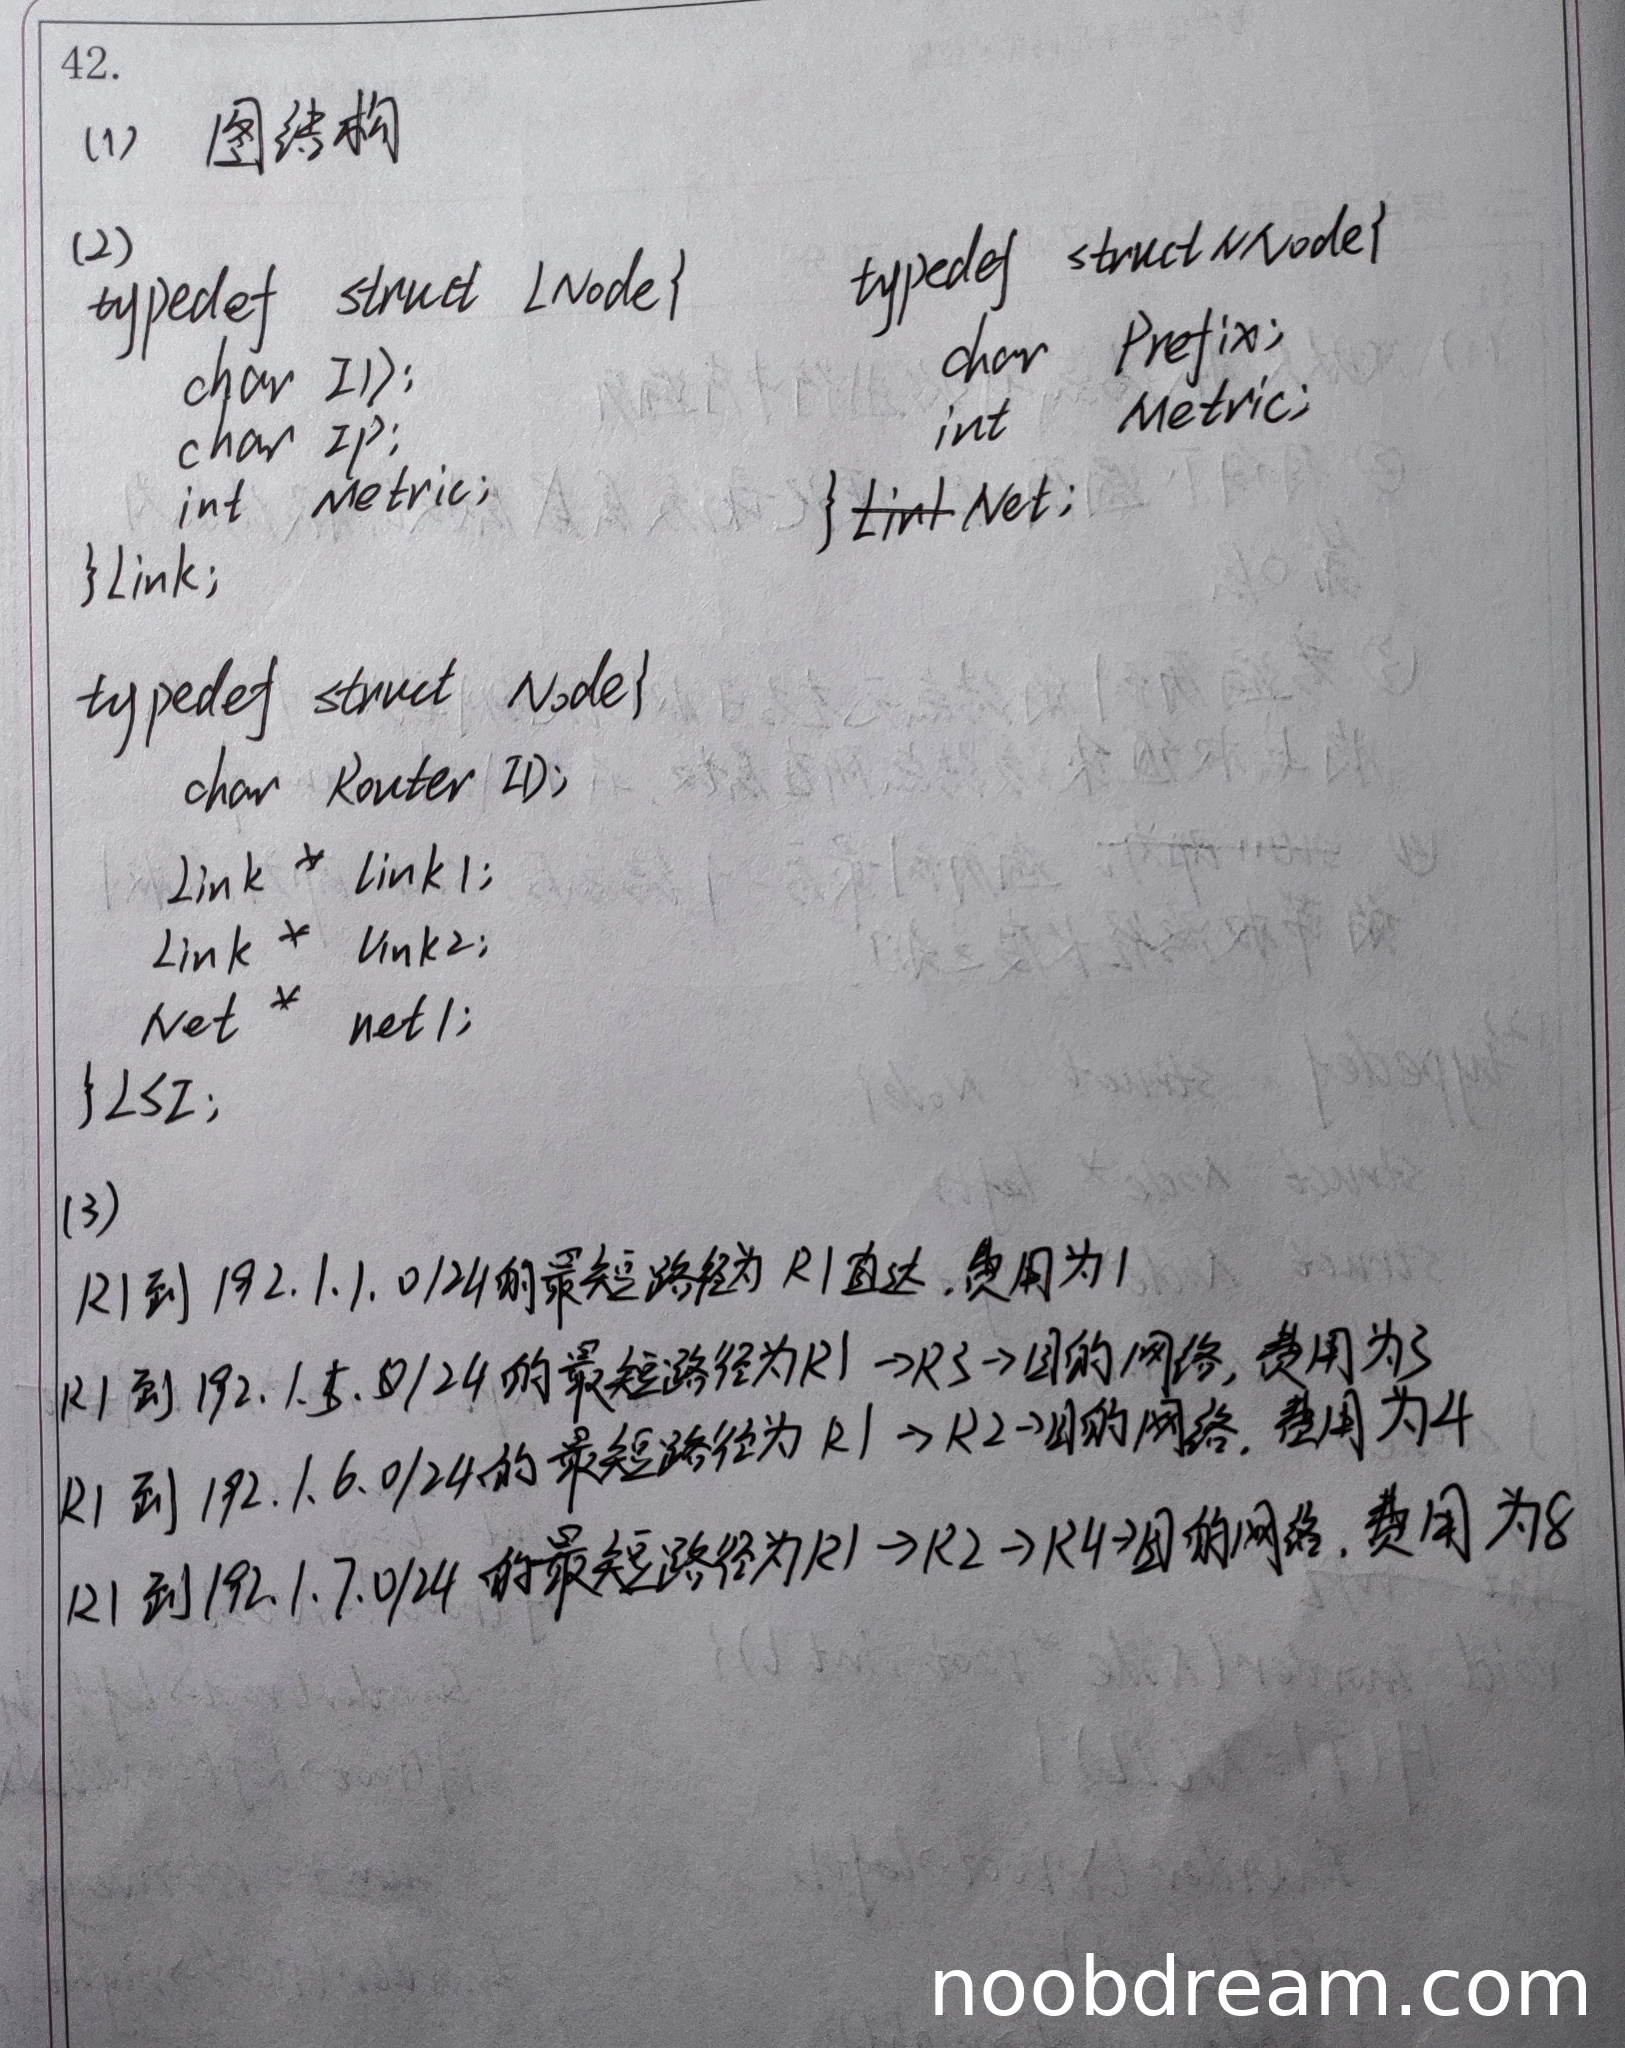 42.
(1) 图结构
(2)
typedef struct LNode{
char ID;
char IP;
int Metric;
}Link;
typedef struct NNode{
char Prefix;
int Metric;
} Net;
typedef struct Node{
char Router ID;
Link * link1;
Link * link2;
Net * net1;
}LSI;
(3)
R1到 192.1.1.0/24的最短路径为 R1直达,费用为1
R1到 192.1.5.0/24的最短路径为R1→R3→目的网络,费用为3
R1到 192.1.6.0/24的最短路径为 R1→R2→目的网络,费用为4
R1到192.1.7.0/24的最短路径为R1→R2→R4→目的网络,费用为8
noobdream.com